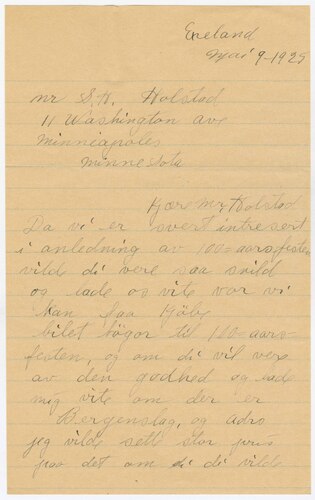 Eneland
Mai 9-1925
Mr S.H. Holstad
11 Washington ave
Minneapoles
Minnesota
Kjære Mr Holstad
Da vi er svert intresert
i anledning av 100-aarsfesten
vilde di vere saa snild
og lade os vite vor vi
kan faa Kjöbe
bilet bögor til 100-aars-
festen, og om di vil vere
av den godhed og lade
mig vite om der er
Bergenslag, og adrs
jeg vilde sette stor pris
paa det om di di vilde